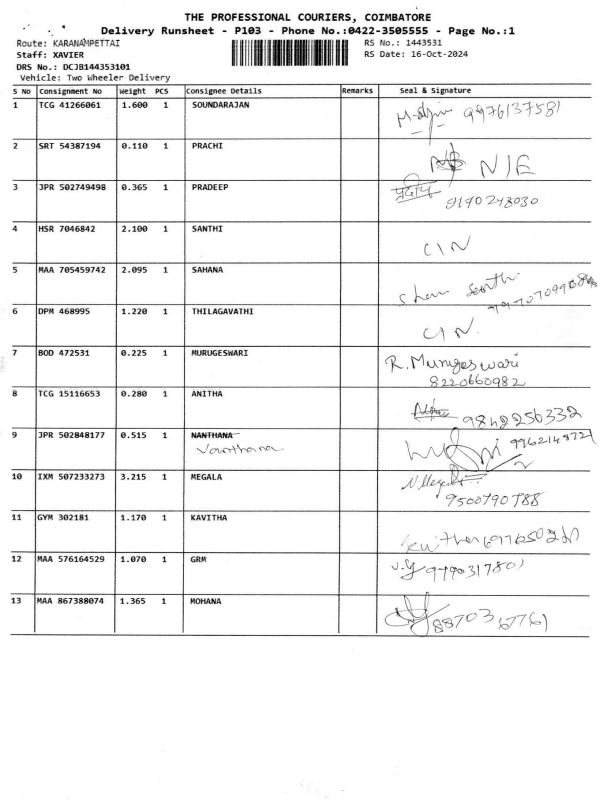 THE PROFESSIONAL COURIERS, COIMBATORE
Delivery Runsheet - P103 - Phone No.:0422-3505555 - Page No.:1
Route: KARANAMPETTAI RS No.: 1443531
Staff: XAVIER RS Date: 16-Oct-2024
DRS No.: DCJB144353101
Vehicle: Two Wheeler Delivery
S No Consignment No Weight PCS Consignee Details Remarks Seal & Signature
1 TCG 41266061 1.600 1 SOUNDARAJAN 9976137581
2 SRT 54387194 0.110 1 PRACHI N/E
3 JPR 502749498 0.365 1 PRADEEP प्रदीप
9170248030
4 HSR 7046842 2.100 1 SANTHI C/N
5 MAA 705459742 2.095 1 SAHANA
6 DPM 468995 1.220 1 THILAGAVATHI C/N
7 BOD 472531 0.225 1 MURUGESWARI R. Murugeswari
8220660982
8 TCG 15116653 0.280 1 ANITHA 9842256332
9 JPR 502848177 0.515 1 NANTHANA
Vanthana
10 IXM 507233273 3.215 1 MEGALA N. Megala
9500790788
11 GYM 302181 1.170 1 KAVITHA
12 MAA 576164529 1.070 1 GRM
13 MAA 867388074 1.365 1 MOHANA 8870367761